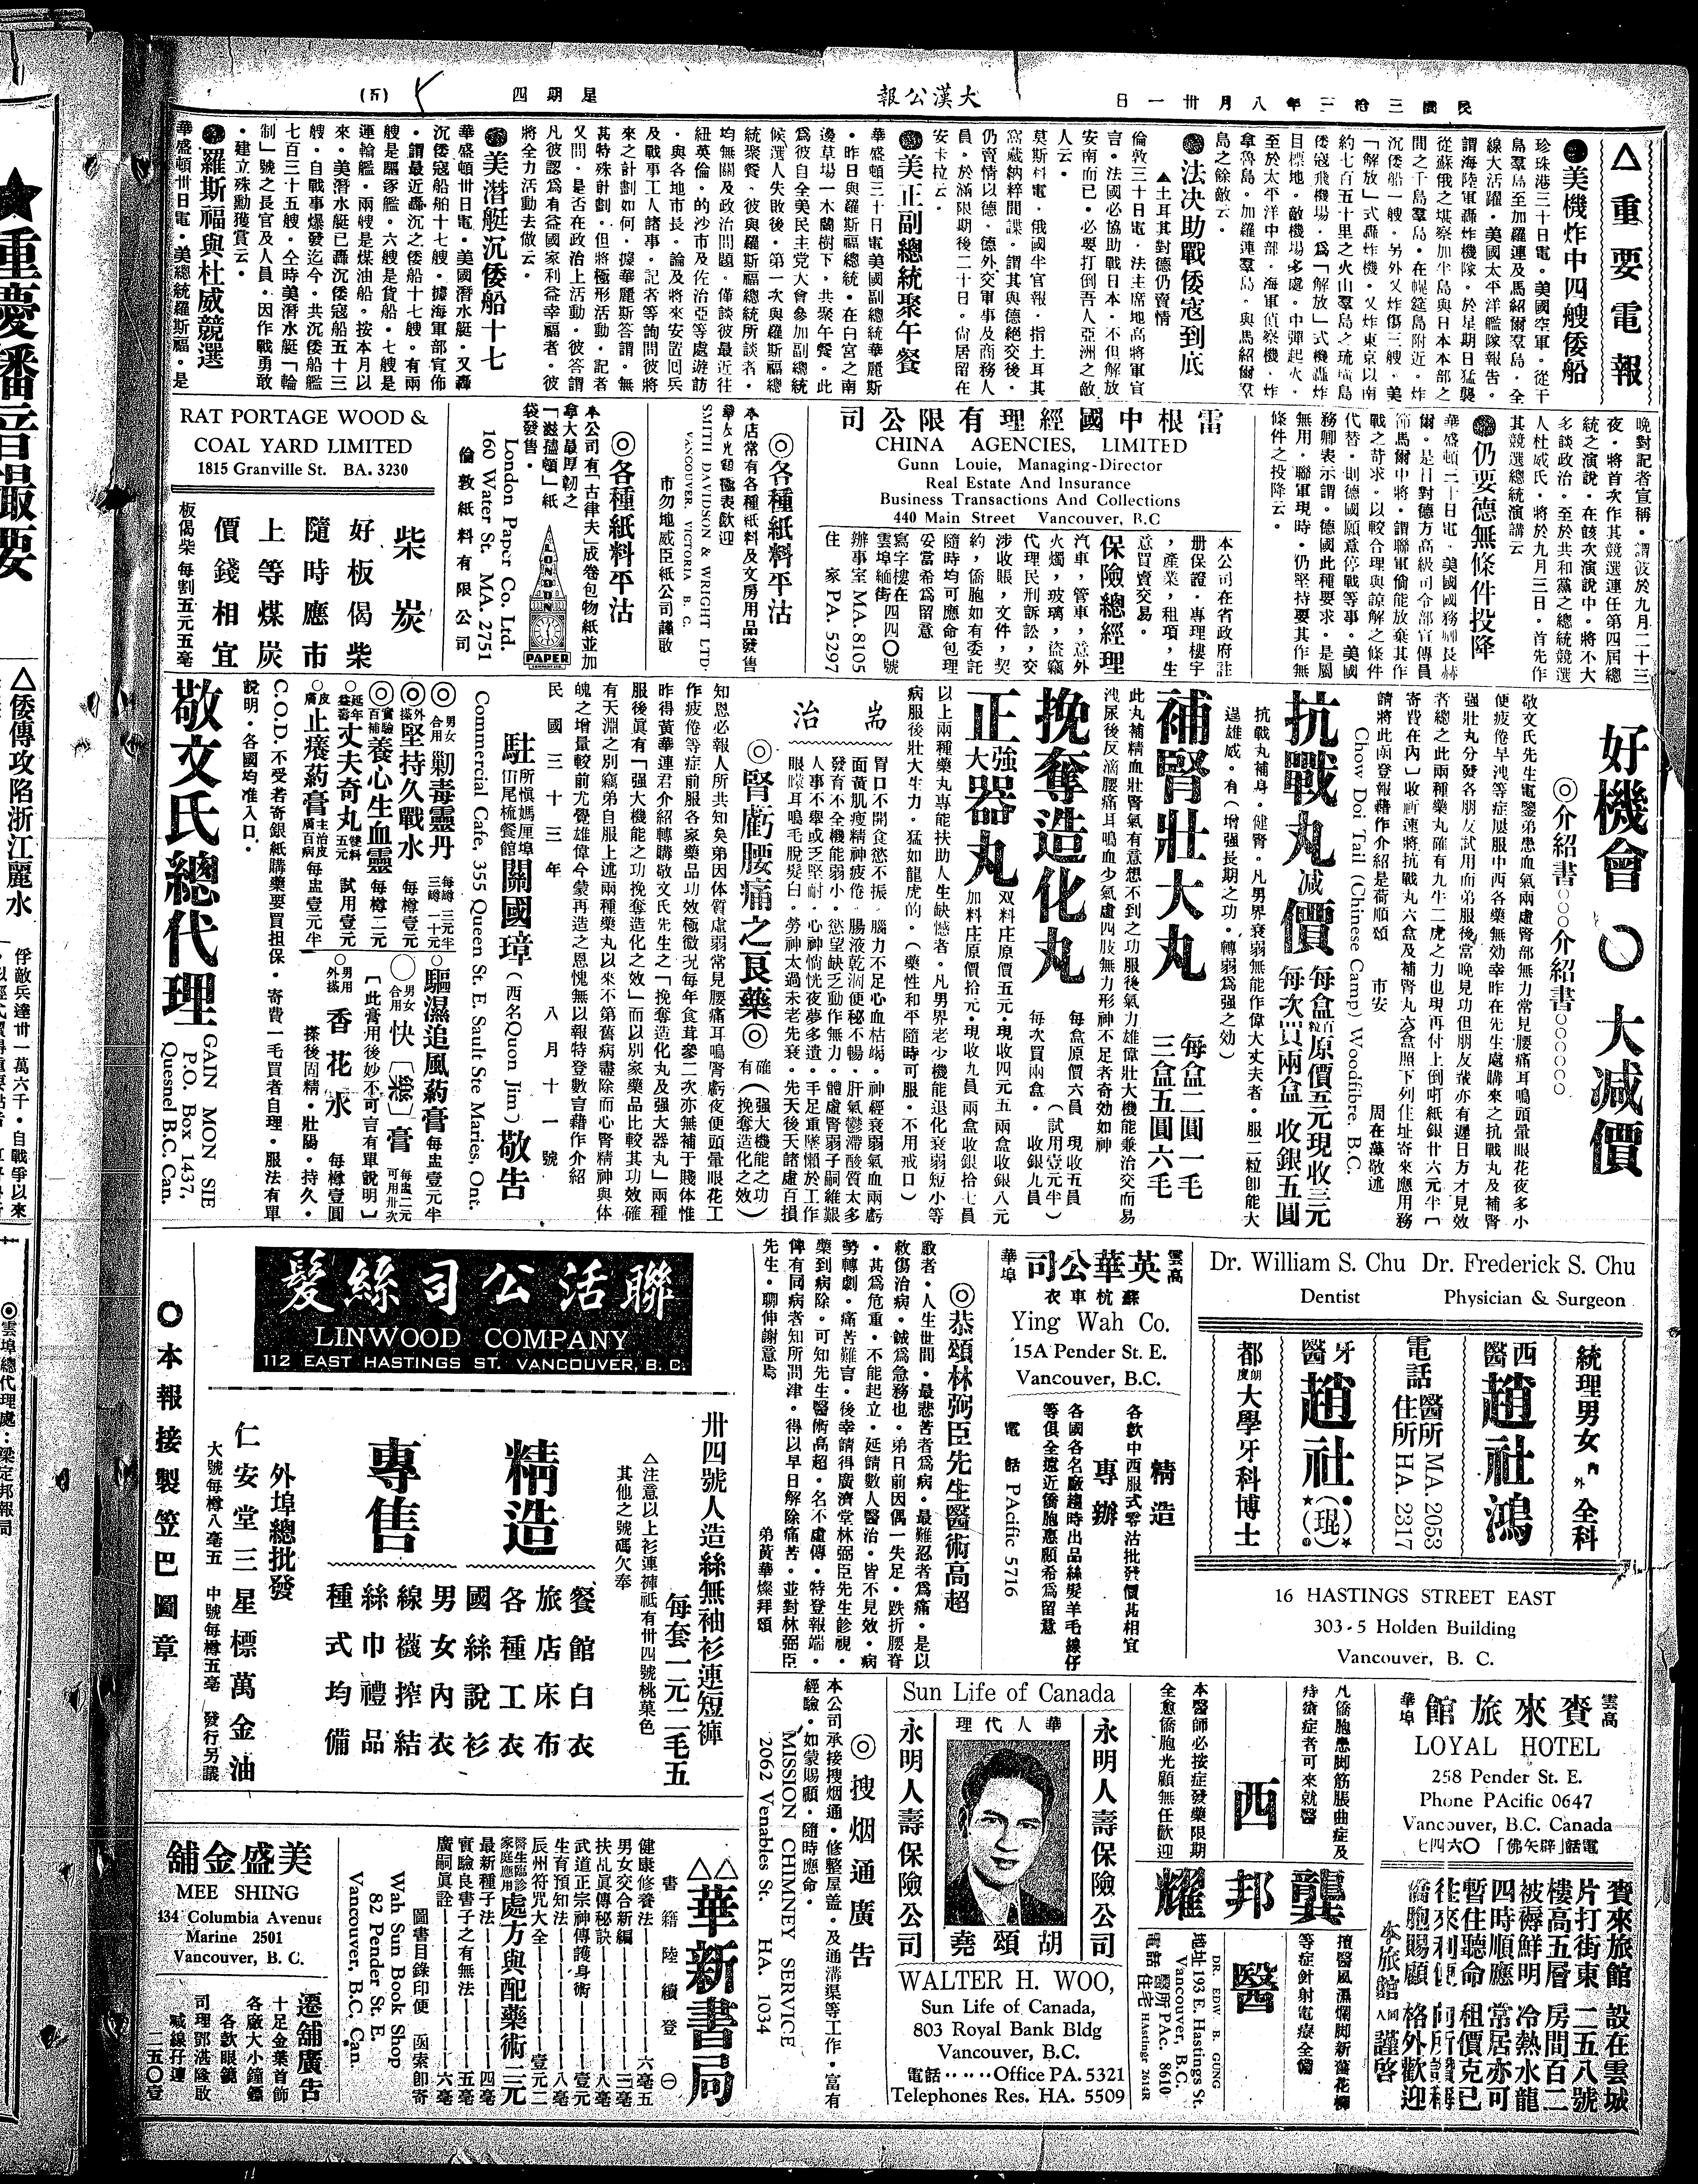 民國三拾三年八月卅一日
大漢公報
星期四
(五)
△重要電報
●美機炸中四艘倭船
珍珠港三十日電。美國空軍。從千
島羣島至加羅連及馬紹爾羣島。全
線大活躍。美國太平洋艦隊報告。
謂海陸軍轟炸機隊。於星期日猛襲
從蘇俄之堪察加半島與日本本部之
間之千島羣島。在幌筵島附近。炸
沉倭船一艘。另外又炸傷三艘。美
「解放」式轟炸機。又炸東京以南
約七百五十里之火山羣島之琉璜島
倭寇飛機場。爲「解放」式機轟炸
目標地。敵機場多處。中彈起火。
至於太平洋中部。海軍偵察機。炸
拿魯島。加羅連羣島。與馬紹爾羣
島之餘敵云。
●法決助戰倭寇到底
▲土耳其對德仍賣情
倫敦三十日電。法主席地高將軍宣
言。法國必協助戰日本。不但解放
安南而已。必要打倒吾人亞洲之敵
人云。
莫斯科電。俄國半官報。指土耳其
窩藏納粹間諜。謂其與德絕交後。
仍賣情以德。德外交軍事及商務人
員。於滿限期後二十日。尙居留在
安卡拉云。
●美正副總統聚午餐
華盛頓三十日電美國副總統華麗斯
。昨日與羅斯福總統。在白宮之南
邊草場一木蘭樹下。共聚午餐。此
爲彼自全美民主党大會參加副總統
候選人失敗後。第一次與羅斯福總
統聚餐。彼與羅斯福總統所談者。
均無關及政治問題。僅談彼最近往
紐英倫。的沙市及佐治亞等處遊訪
。與各地市長。論及將來安置囘兵
及戰事工人諸事。記者等詢問彼將
來之計劃如何。據華麗斯答謂。無
甚特殊計劃。但將極形活動。記者
又問。是否在政治上活動。彼答謂
凡彼認爲有益國家利益幸福者。彼
將全力活動去做云。
●美潛艇沉倭船十七
華盛頓卅日電。美國潛水艇。又轟
沉倭寇船舶十七艘。據海軍部宣佈
。謂最近轟沉之倭船十七艘。有兩
艘是驅逐艦。六艘是貨船。七艘是
運輸艦。兩艘是煤油船。按本月以
來。美潛水艇已轟沉倭寇船五十三
艘。自戰事爆發迄今。共沉倭船艦
七百三十五艘。仝時美潛水艇「輪
制」號之長官及人員。因作戰勇敢
。建立殊勳獲賞云。
●羅斯福與杜威競選
華盛頓卅日電。美總統羅斯福。是
晚對記者宣稱。謂彼於九月二十三
夜。將首次作其競選連任第四屆總
統之演說。在該次演說中。將不大
多談政治。至於共和黨之總統競選
人杜威氏。將於九月三日。首先作
其競選總統演講云
●仍要德無條件投降
華盛頓三十日電。美國國務卿長赫
爾。是日對德方高級司令部宣傳員
節馬爾中將。謂聯軍倘能放棄其作
戰之苛求。以較合理與諒解之條件
代替。則德國願意停戰等事。美國
務卿表示謂。德國此種要求。是屬
無用。聯軍現時。仍堅持要其作無
條件之投降云。
雷根中國經理有限公司
CHINA AGENCIES, LIMITED
Gunn Louie, Managing-Director
Real Estate And Insurance
Business Transactions And Collections
440 Main Street Vancouver, B.C
本公司在省政府註
册保證。專理樓宇
，產業，租項，生
意買賣交易。
保險總經理
汽車，管車，意外
火燭，玻璃，盜竊
代理民刑訴訟，交
涉收賬，文件，契
約，僑胞如有委託
隨時均可應命包理
妥當希爲留意
寫字樓在
雲埠緬街四四〇號
辦事室 MA.8105
住家 PA. 5297
◎各種紙料平沽
本店常有各種紙料及文房用品發售
SMITH DAVIDSON & WRIGHT LTD.
VANCOUVER VICTORIA B. C.
市勿地威臣紙公司謹啟
◎各種紙料平沽
本公司有「古律夫」成卷包物紙並加
拿大最厚韌之
「滋搕頓」紙
袋發售。
LONDON
PAPER
COMPANY LTD.
London Paper Co. Ltd.
160 Water St. MA. 2751
倫敦紙料有限公司
RAT PORTAGE WOOD &
COAL YARD LIMITED
1815 Granville St. BA. 3230
柴炭
好板偈柴
隨時應市
上等煤炭
價錢相宜
板偈柴 每割五元五毫
好機會〇大減價
◎介紹書〇〇〇介紹書〇〇〇〇〇〇
敬文氏先生電鑒弟患血氣兩虛腎部無力常見腰痛耳鳴頭暈眼花夜多小
便疲倦早洩等症屢服中西各藥無効幸昨在先生處購來之抗戰丸及補腎
強壯丸分發各朋友試用而弟服後當晚見功但朋友輩亦有遲日方才見效
者總之此兩種藥丸確有九牛二虎之力也現再付上倒啱紙銀廿六元半〔
寄費在內〕收祈速將抗戰丸六盒及補腎丸六盒照下列住址寄來應用務
請將此函登報藉作介紹是荷順頌 市安 周在藻敬述
Chow Doi Tail (Chinese Camp) Woodfibre. B.C.
抗戰丸减價
每盒百粒原價五元現收三元
每次買兩盒 收銀五圓
抗戰丸補身。健腎。凡男界衰弱無能作偉大丈夫者。服二粒卽能大
逞雄威。有（增強長期之功。轉弱爲強之効）
補腎壯大丸
每盒二圓一毛
三盒五圓六毛
此丸補精血壯腎氣有意想不到之功服後氣力雄偉壯大機能兼治交而易
洩尿後反滴腰痛耳鳴血少氣虛四肢無力形神不足者奇効如神
挽奪造化丸
每盒原價六員 現收五員
每次買兩盒。收銀九員
（試用壹元半）
正大強器丸
双料庄原價五元。現收四元五兩盒收銀八元
加料庄原價拾元。現收九員兩盒收銀拾七員
以上兩種藥丸專能扶助人生缺憾者。凡男界老少機能退化衰弱短小等
病服後壯大生力。猛如龍虎的。（藥性和平隨時可服。不用戒口）
耑治
胃口不開食慾不振。腦力不足心血枯竭。神經衰弱氣血兩虧
面黃肌瘦精神疲倦。腸液乾涸便秘不暢。肝氣鬱滯酸質太多
發育不全機能弱小。慾望缺乏動作無力。體虛腎弱子嗣維艱
人事不舉或乏堅耐。心神惝恍夜夢多遺。手足重墜懶於工作
眼矇耳鳴毛脫髮白。勞神太過未老先衰。先天後天諸虛百損
◎腎虧腰痛之良藥◎
確有（強大機能之功）（挽奪造化之效）
知恩必報人所共知矣弟因体質虛弱常見腰痛耳鳴腎虧夜便頭暈眼花工
作疲倦等症前服各家藥品功效極微況每年食茸參二次亦無補于賤體惟
昨得黃華連君介紹轉購敬文氏先生之「挽奪造化丸及强大器丸」兩種
服後眞有「强大機能之功挽奪造化之效」而以別家藥品比較其功效確
有天淵之別竊弟自服上述兩種藥丸以來不第舊病盡除而心腎精神與体
魄之增量較前尤覺雄偉今蒙再造之恩愧無以報特登數言藉作介紹
民國三十三年 八月十一號
駐所愼媽厘埠㕥尾梳餐館關國璋（西名Quon Jim）敬告
Commercial Cafe, 355 Queen St. E. Sault Ste Maries, Ont.
◎男女合用剿毒靈丹 每罇三元半 三罇一十元
◎外搽堅持久戰水 每樽壹元
◎實驗百補養心生血靈 每樽二元
○延年益壽丈夫奇丸健料五元 試用壹元
○皮膚止癢葯膏主治皮膚百病 每盅壹元半
○驅濕追風葯膏 每盅壹元半
○男女合用快〔樂〕膏 每盅二元 可用卅次
〔此膏用後妙不可言有單說明〕
○男用外搽香花水 每樽壹圓
搽後固精。壯陽。持久。
C.O.D.不受者寄銀紙購藥要買担保。寄費一毛買者自理。服法有單
說明。各國均准入口。
敬文氏總代理
GAIN MON SIE
P.O. Box 1437,
Quesnel B.C. Can.
Dr. William S. Chu Dr. Frederick S. Chu
Dentist Physician & Surgeon
統理男女內外全科
西醫趙社鴻
電話 醫所 MA. 2053
住所 HA. 2317
牙醫趙社(琨)
都朗度大學牙科博士
16 HASTINGS STREET EAST
303-5 Holden Building
Vancouver, B. C.
雲高華埠
英華公司
蘇杭車衣
Ying Wah Co.
15A Pender St. E.
Vancouver, B.C.
精造
各欵中西服式零沽批發價甚相宜
專辦
各國各名廠趨時出品絲髮羊毛線仔
等俱全遠近僑胞惠顧希爲留意
電話 PAcific 5716
◎恭頌林弼臣先生醫術高超
敬者。人生世間。最悲苦者爲病。最難忍者爲痛。是以
救傷治病。誠爲急務也。弟日前因偶一失足。跌折腰脊
。甚爲危重。不能起立。延請數人醫治。皆不見效。病
勢轉劇。痛苦難言。後幸請得廣濟堂林弼臣先生診視。
藥到病除。可知先生醫術高超。名不虛傳。特登報端。
俾有同病者知所問津。得以早日解除痛苦。並對林弼臣
先生。聊伸謝意焉
弟黃華燦拜頌
聯活公司絲髮
LINWOOD COMPANY
112 EAST HASTINGS ST. VANCOUVER, B. C.
卅四號人造絲無袖衫連短褲
每套一元二毛五
△注意以上衫連褲祗有卅四號桃菓色
其他之號碼欠奉
精造
專售
餐館白衣
旅店床布
各種工衣
國絲說衫
男女內衣
線襪搾結
絲巾禮品
種式均備
外埠總批發
仁安堂三星標萬金油
大號每樽八毫五 中號每樽五毫 發行另議
〇本報接製笠巴圖章
雲高華埠
賚來旅館
LOYAL HOTEL
258 Pender St. E.
Phone PAcific 0647
Vancouver, B.C. Canada
電話「辟矢佛」〇六四七
賚來旅館 設在雲城
片打街東 二五八號
樓高五層 房間百二
被褥鮮明 冷熱水龍
四時順應 常居亦可
暫住聽命 租價克己
往來利便 向所讚稱
僑胞賜顧 格外歡迎
本旅館同人謹啓
凡僑胞患脚筋脹曲症及
痔瘡症者可來就醫
西醫
龔邦耀
本醫師必按症發藥限期
全愈僑胞光顧無任歡迎
擅醫風濕爛脚新舊花柳
等症針射電療全備
DR. EDW B. GUNG
地址193 E. Hastings St.
Vancouver, B.C.
電話 醫所 PAc. 8610
住宅 HAstings 2614R
Sun Life of Canada
華人代理
永明人壽保險公司
永明人壽保險公司
胡頌堯
WALTER H. WOO,
Sun Life of Canada,
803 Royal Bank Bldg
Vancouver, B.C.
電話‥‥‥Office PA. 5321
Telephones Res. HA. 5509
◎搜烟通廣告
本公司承接搜烟通。修整屋盖。及通溝渠等工作。富有
經驗。如蒙賜顧。隨時應命。
MISSION CHIMNEY SERVICE
2062 Venables St. HA. 1034
△△華新書局
書籍陸續登㊀
健康修養法 六毫五
男女交合新編 三毫
扶乩眞傳秘訣 八毫
武道正宗神傳護身術 壹元
生育預知法 八毫
辰州符咒大全 壹元二
醫生臨診家庭應用處方與配藥術三元
最新種子法 四毫
實驗良書子之有無法 五毫
廣嗣眞詮 六毫
圖書目錄印便 函索卽寄
Wah Sun Book Shop
82 Pender St. E.
Vancouver, B.C., Can.
美盛金舖
MEE SHING
434 Columbia Avenue
Marine 2501
Vancouver, B. C.
遷舖廣告
十足金葉首飾
各廠大小鐘鏢
各欵眼鏡
司理鄧湛隆啟
喊線孖連
二五〇壹
★重慶播音撮要
△倭傳攻陷浙江麗水
◎雲埠總代理處：梁定邦報局